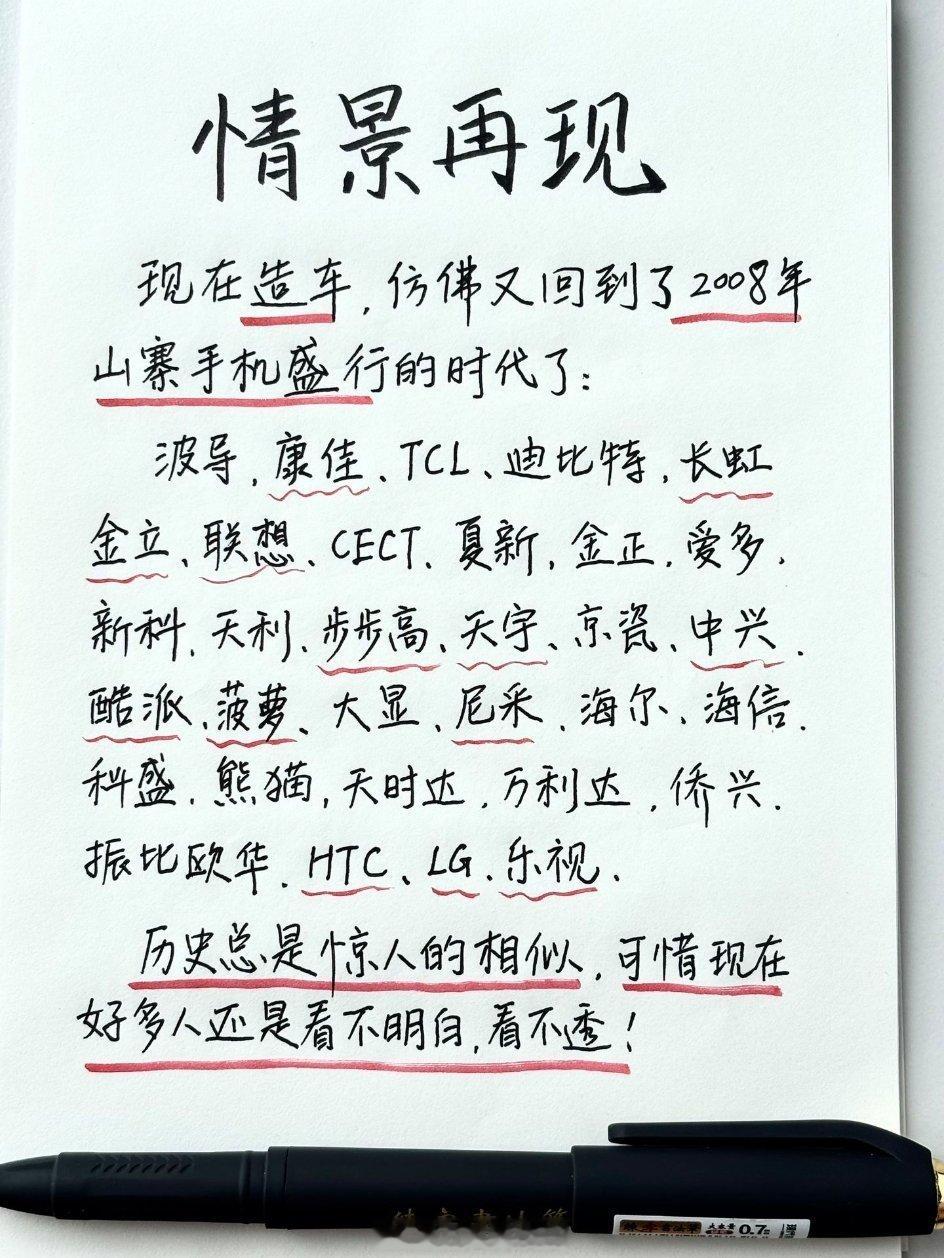 情景再现
现在造车，仿佛又回到了2008年
山寨手机盛行的时代了：
波导、康佳、TCL、迪比特、长虹
金立、联想、CECT、夏新、金正、爱多、
新科、天利、步步高、天宇、京瓷、中兴、
酷派、菠萝、大显、尼采、海尔、海信、
科盛、熊猫、天时达、万利达、侨兴、
振比欧华、HTC、LG、乐视、
历史总是惊人的相似，可惜现在
好多人还是看不明白，看不透！
0.7